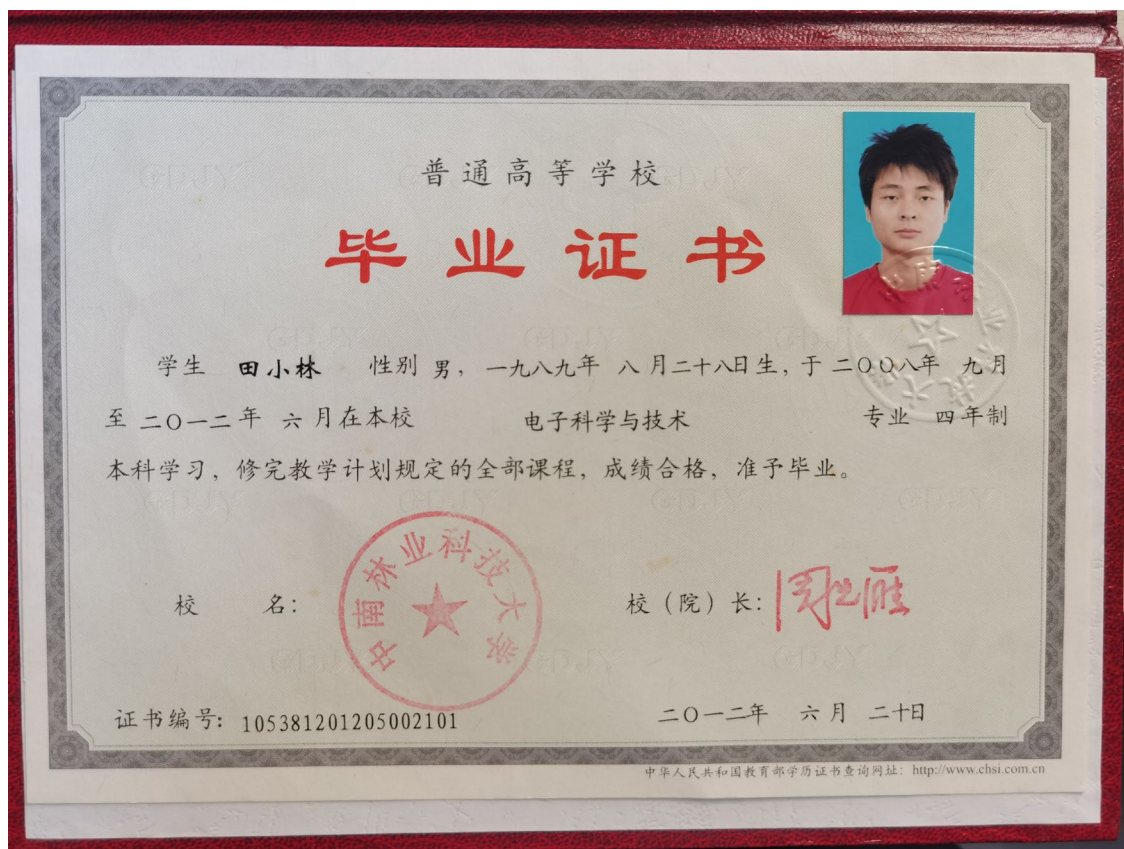 普通高等学校
毕业证书
学生 田小林 性别 男，一九八九年 八月二十八日生，于二〇〇八年 九月
至二〇一二年 六月在本校 电子科学与技术 专业 四年制
本科学习，修完教学计划规定的全部课程，成绩合格，准予毕业。
中南林业科技大学
校 名： 校（院）长：
证书编号：105381201205002101 二〇一二年 六月 二十日
中华人民共和国教育部学历证书查询网址：http://www.chsi.com.cn